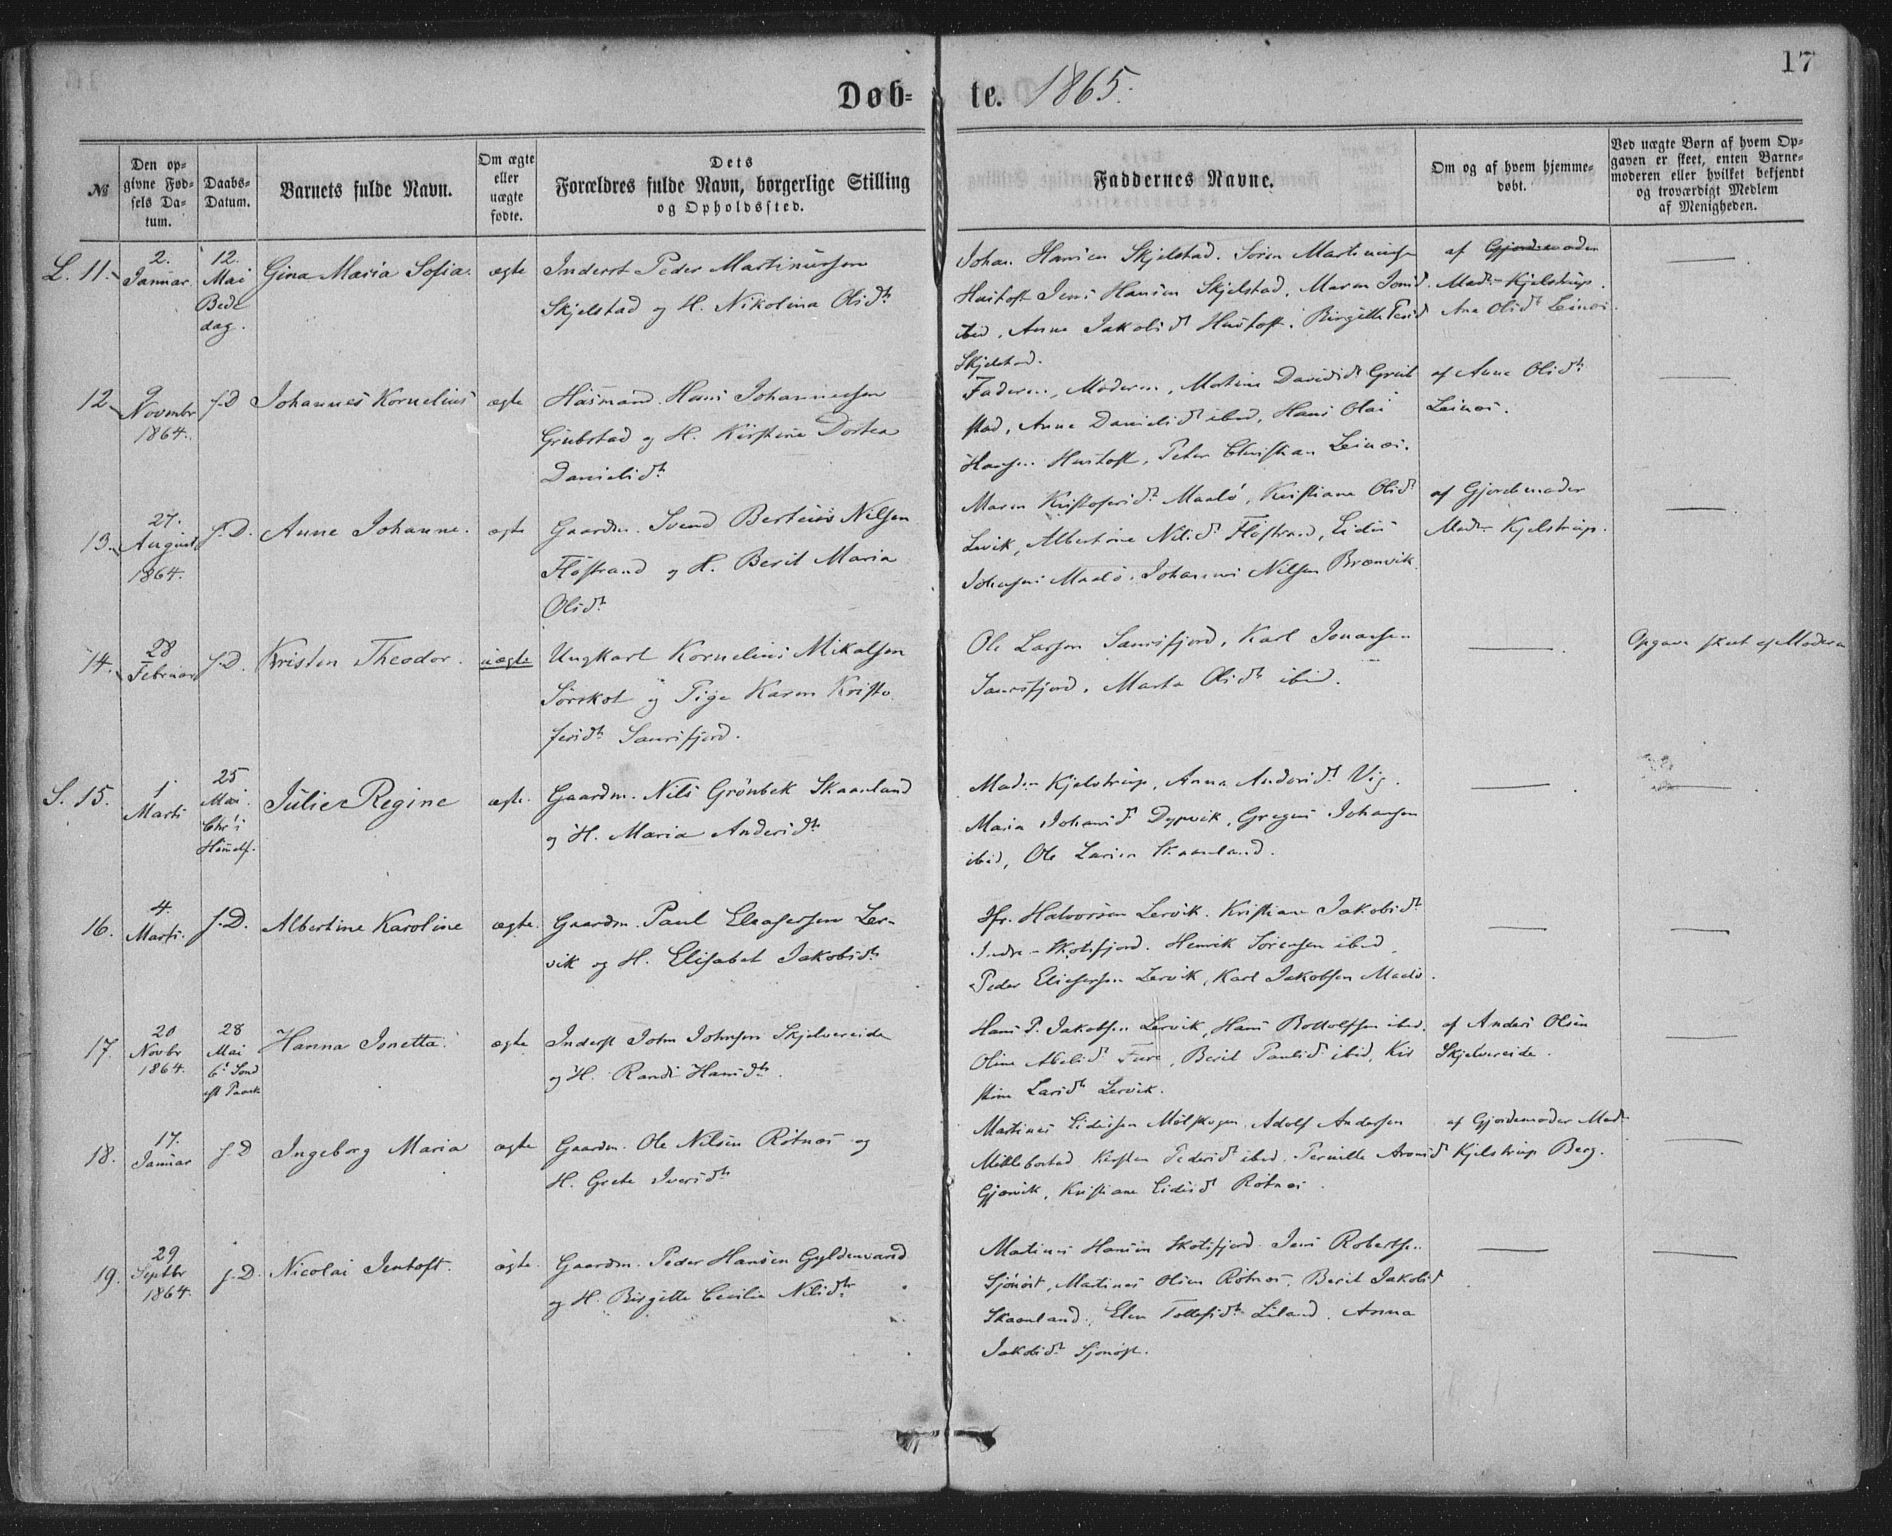 17
Døb- te. 1865.
№
Den opgivne Fødsels Datum.
Daabs-Datum.
Barnets fulde Navn.
Om ægte eller uægte fødte.
Dets Forældres fulde Navn, borgerlige Stilling og Opholdssted.
Faddernes Navne.
Om og af hvem hjemmedøbt.
Ved uægte Børn af hvem Opgaven er skeet, enten Barnemoderen eller hvilket bekjendt og troværdigt Medlem af Menigheden.
L. 11. 2. Januar 12. Mai Bededag. Gina Maria Sofia. ægte
Inderst Peder Martinussen
Skjelstad og H. Nikolina Olsdtr
Johan Hansen Skjelstad. Sören Martinusen
Havtoft Jens Hansen Skjelstad, Maren
ibid, Anne Jakobsdt Havtoft. Birgitte
Skjelstad.
af Gjordemoder
Mad. Kjelstrup.
Ane Olsdt Leinæs.
12 9 Novembr 1864. f.D Johannes Kornelius ægte
Husmand Hans Johannessen
Grubstad og H. Kirstine Dortea
Danielsdtr
Faderen, Moderen, Martine Davidsdt Grub
stad, Anne Danielsdt ibid, Hans Olai
Hansen Havtoft, Peter Christian Leinæs.
af Anne Olsdtr
Leinæs.
13. 27. August 1864. f.D. Anne Johanne. ægte
Gaardm. Svend Berteus Nilsen
Flöstrand og H. Berit Maria
Olsdtr
Maren Kristofersdt Maalö, Kristiane Olsdt
Levik, Albertine Nilsdt Flöstrand, Eidis
Johansen Maalö. Johannes Nilsen Brænvik.
af Gjordemoder
Mad. Kjelstrup.
14. 28 Februar f.D. Kristen Theodor. uægte
Ungkarl Kornelius Mikalsen
Sörskot og Pige Karen Kristo
fersdtr Saursfjord.
Ole Larsen Saursfjord, Karl Jonassen
Saursfjord. Marta Olsdtr ibid.
Opgave skeet af Moderen
S. 15. 1 Marts 25 Mai Chr's Himelf. Julie Regine ægte.
Gaardm. Nils Grönbek Skaanland
og H. Maria Andersdtr
Mad. Kjelstrup, Anna Andersdt Vig.
Maria Johansdt Dypvik, Gregus Johansen
ibid, Ole Larsen Skaanland.
16. 4. Marts. f.D. Albertine Karoline ægte.
Gaardm. Paul Eleasersen Ler-
vik og H. Elisabet Jakobsdtr
Halvorsen Lervik. Kristiane Jakobsdtr
Indre-Skotsfjord. Henrik Sörensen ibid,
Peder Eliesersen Lervik, Karl Jakobsen Maalö.
17 20 Novbr 1864. 28 Mai 6' Sönd eft Paask Hanna Jonetta. ægte
Inderst John Johnsen Skjelvereide
og H. Randi Hansdtr.
Hans P. Jakobsen Lervik, Hans Bottolfsen ibid.
Oline Abelsdt Fure, Berit Paulsdt ibid, Kir
stine Larsdt Lervik.
af Anders Olsen
Skjelvereide.
18. 17. Januar f.D Ingeborg Maria ægte
Gaardm. Ole Nilsen Rötnes og
H. Grete Iversdtr
Martines Eidissen Mölskogen. Adolf Andersen
Miklebostad. Kirsten Pedersdt ibid. Pernille Aronsdt
Gjærvik, Kristiane Eidisdt Rötnes.
af Gjordemoder Mad.
Kjelstrup Berg.
19. 29 Septbr 1864. f.D. Nicolai Jentoft. ægte.
Gaardm. Peder Hansen Gyldenvand
og H. Birgitte Cecilie Nilsdtr
Matius Hansen Skotsfjord. Jens Robertsen
Sjönöst, Martines Olsen Rötnes. Berit Jakobsdt
Skaanland, Elen Tollefsdtr Liland. Anna
Jakobsdt Sjönöst.